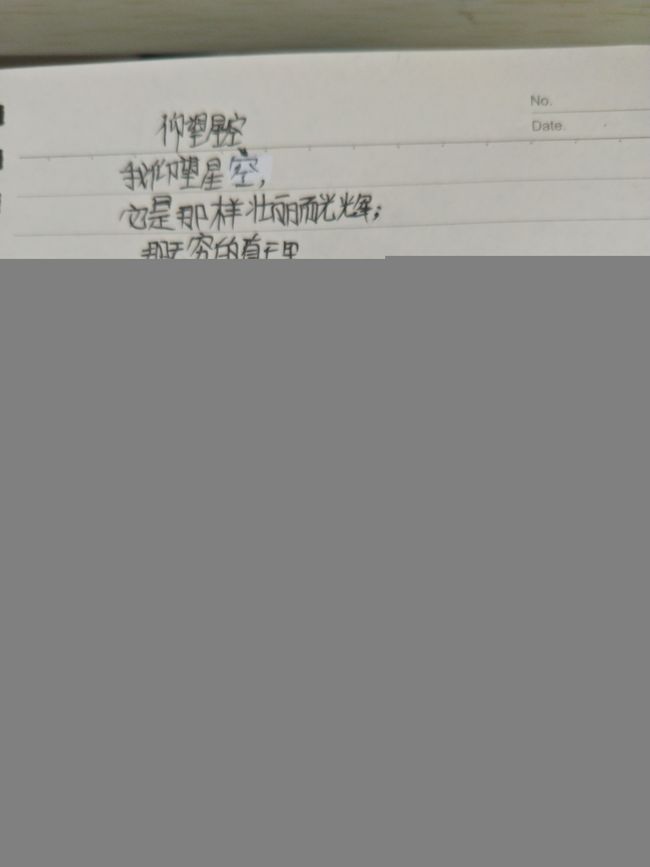 仰望星空
No.
Date.
我仰望星空,
它是那样壮丽而光辉;
那无穷的真理